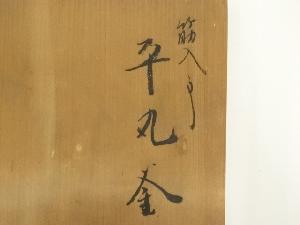 筋入り
平丸釜